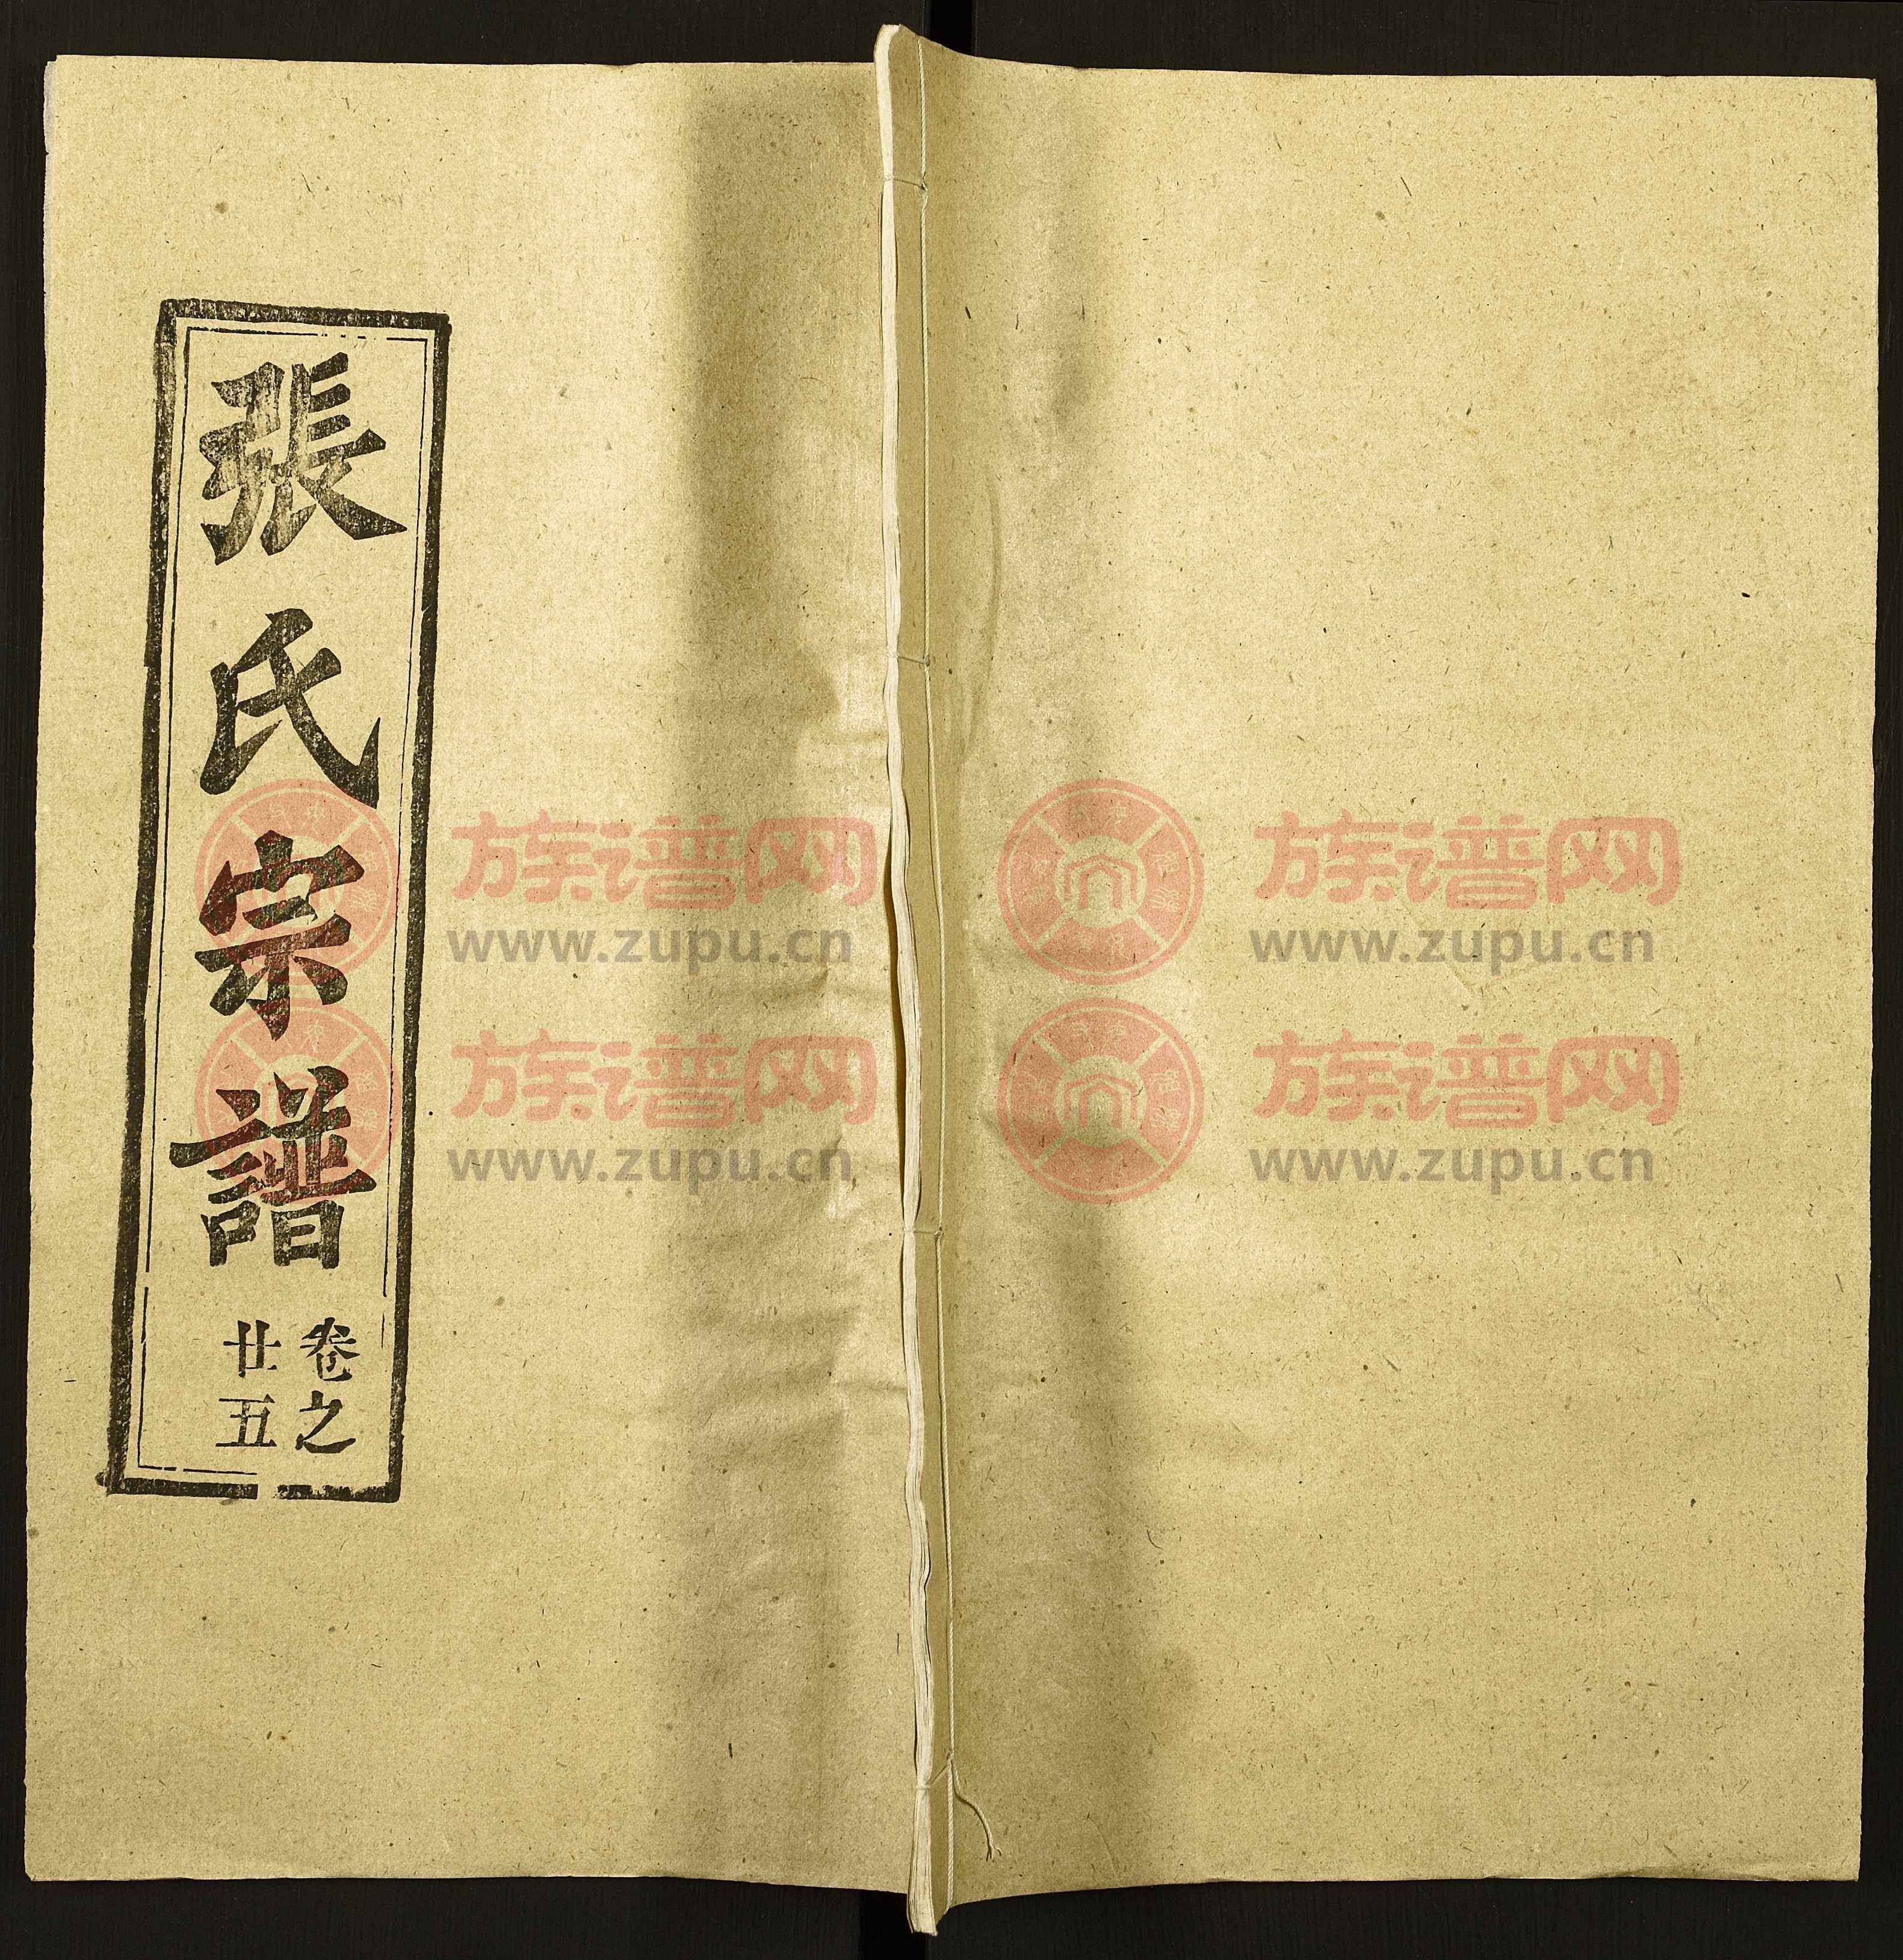 張氏宗譜
卷之
廿五
族谱网
www.zupu.cn
族谱网
www.zupu.cn
族谱网
www.zupu.cn
族谱网
www.zupu.cn